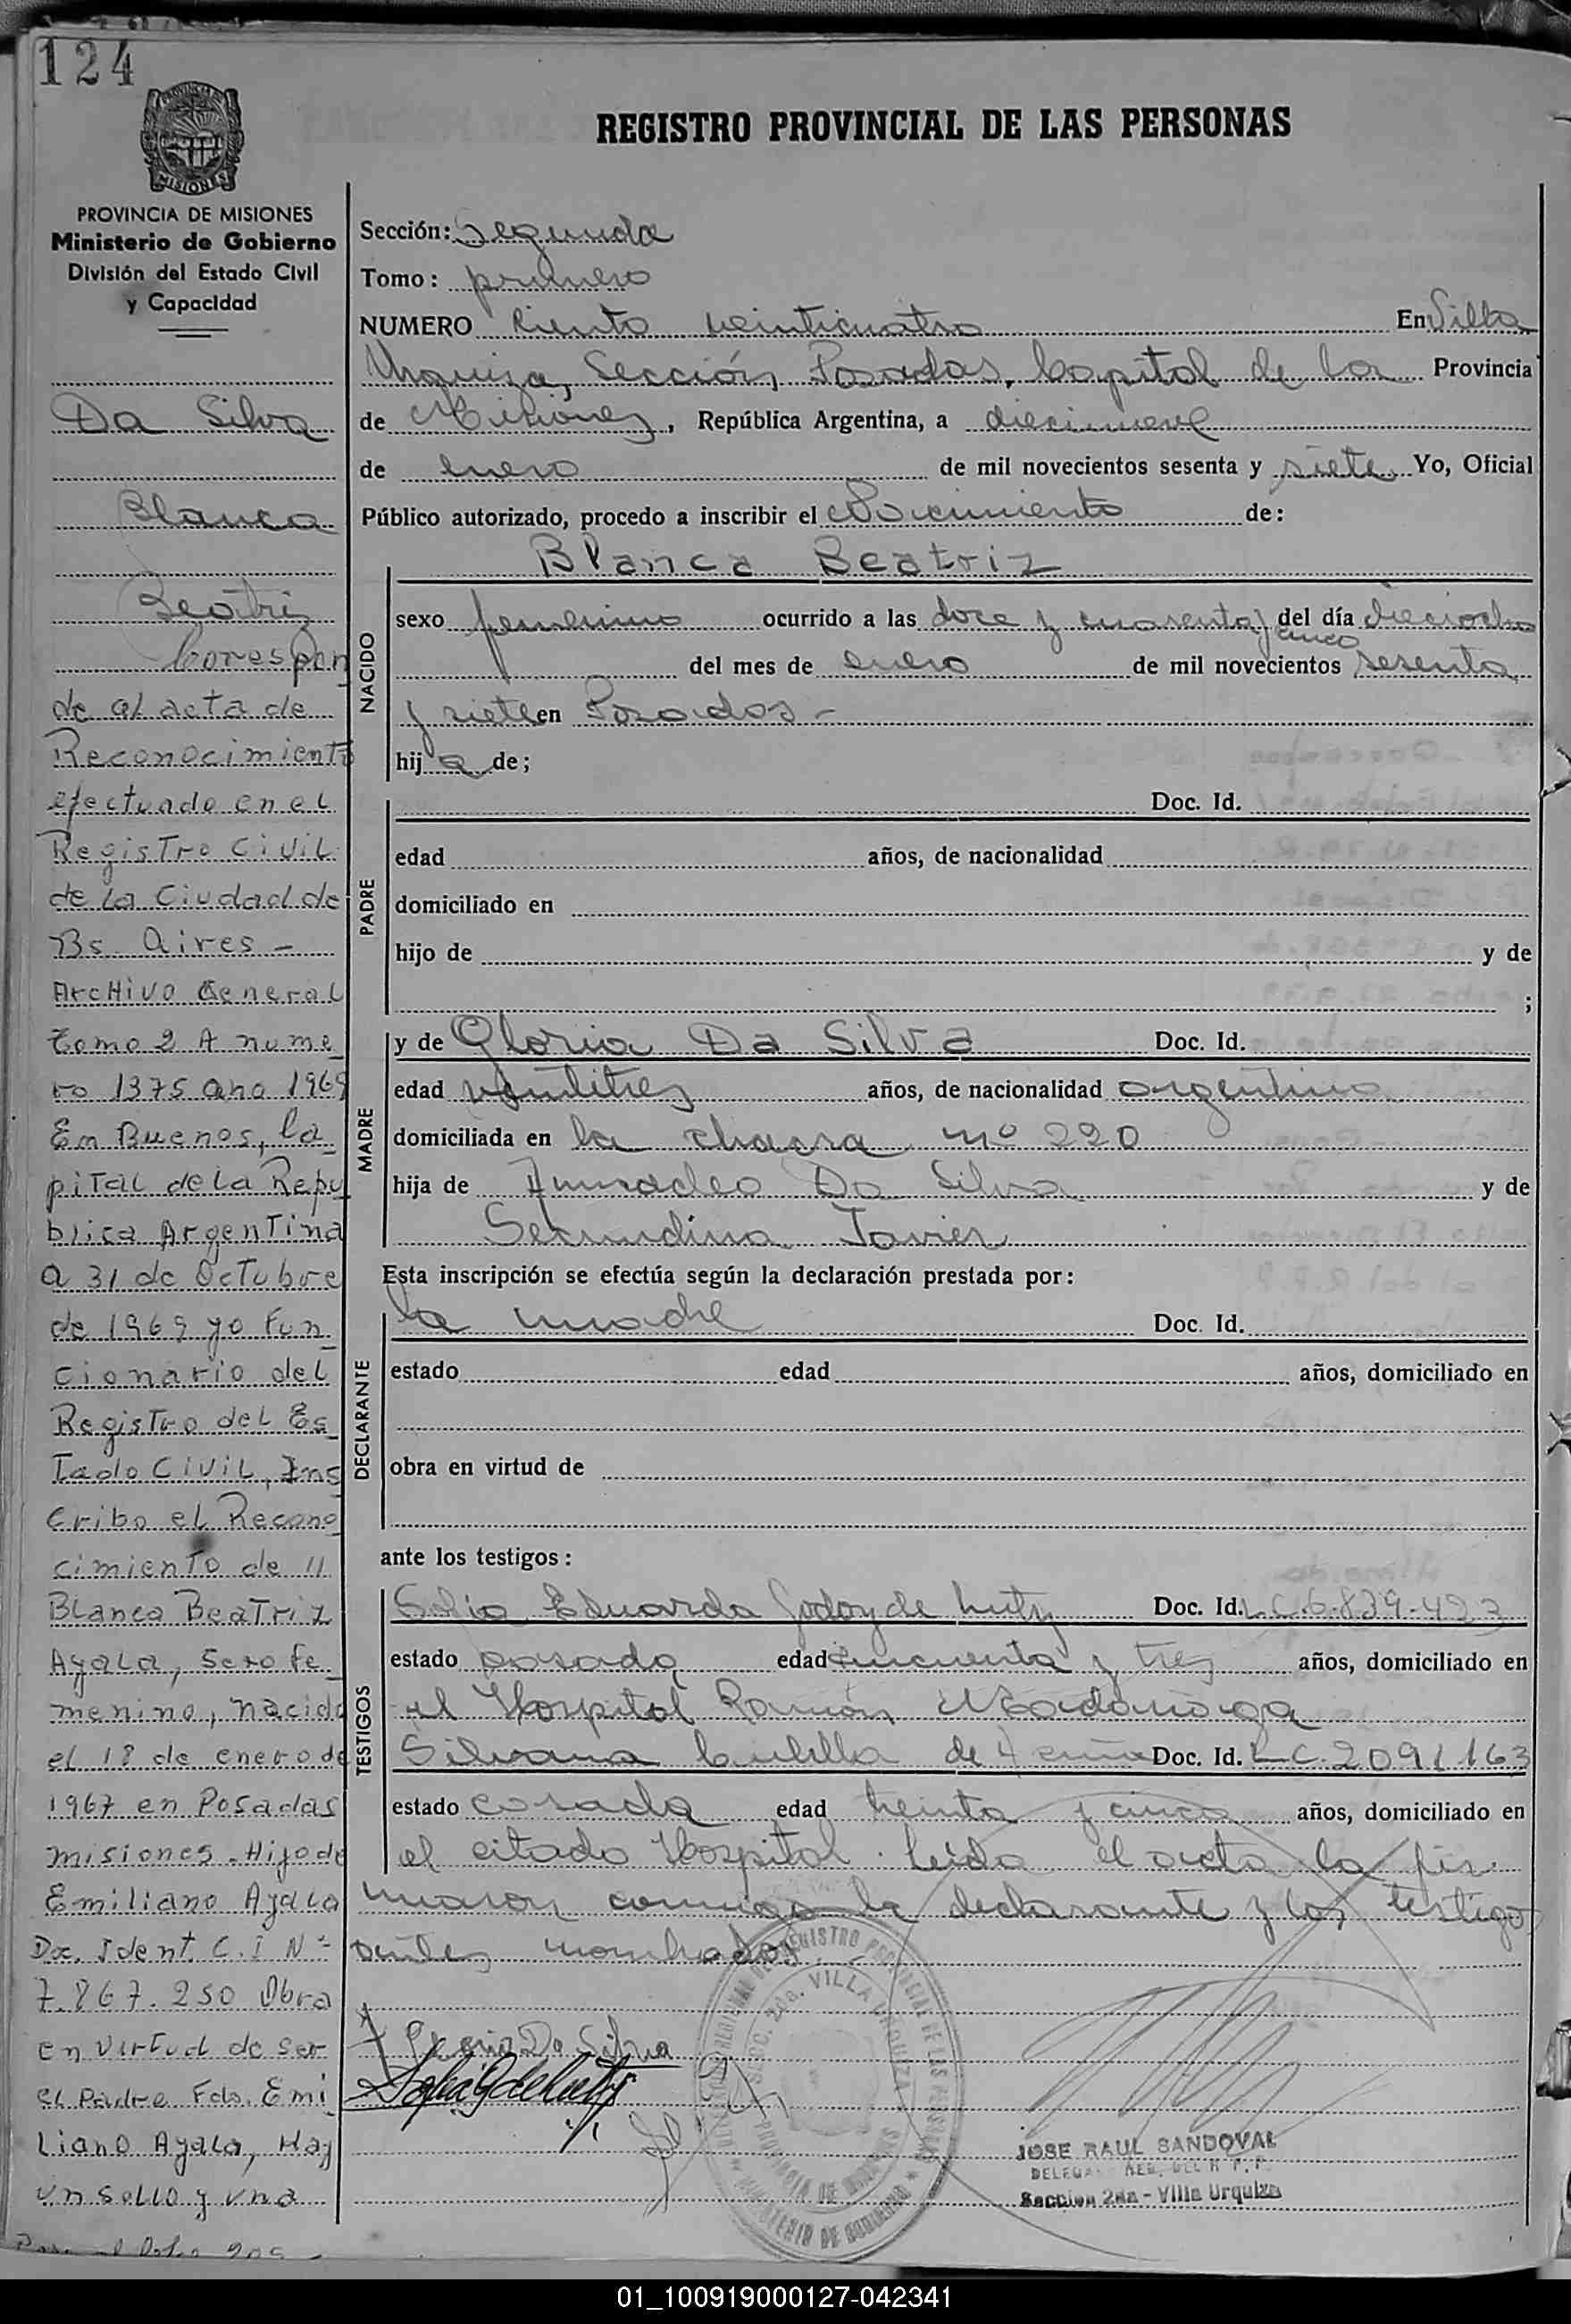 124
PROVINCIA DE MISIONES
Ministerio de Gobierno
División del Estado Civil
y Capacidad
Da Silva
Blanca
Beatriz
Correspon
de al acta de
Reconocimiento
efectuado en el
Registro Civil
de la Ciudad de
Bs. Aires -
Archivo General
tomo 2 A nume
ro 1375 ano 1969
En Buenos, Ca
pital de la Repu
blica Argentina
a 31 de Octubre
de 1969 yo Fun
cionario del
Registro del Es
Tado Civil, Ins
cribo el Recono
cimiento de "
Blanca Beatriz
Ayala, Sexo fe
menino, nacida
el 18 de enero de
1967 en Posadas
misiones. Hijo de
Emiliano Ayala
Doc. Ident C. I Nº
7.867.250 Obra
en virtud de ser
el Padre Fdo. Emi
liano Ayala, Hay
un sello y una
REGISTRO PROVINCIAL DE LAS PERSONAS
Sección: Segunda
Tomo: primero
NUMERO Ciento veinticuatro En Villa
Urquiza, Sección, Posadas, Capital de la Provincia
de Misiones, República Argentina, a diecinueve
de enero de mil novecientos sesenta y siete Yo, Oficial
Público autorizado, procedo a inscribir el Nacimiento de:
Blanca Beatriz
NACIDO
sexo femenino ocurrido a las doce y cuarenta y cinco del día dieciocho
del mes de enero de mil novecientos sesenta
y siete en Posadas -
hija de;
PADRE
Doc. Id.
edad años, de nacionalidad
domiciliado en
hijo de y de
;
MADRE
y de Gloria Da Silva Doc. Id.
edad veintitres años, de nacionalidad argentina
domiciliada en la chacra nº 220
hija de Da Silva y de
Secundina Javier
Esta inscripción se efectúa según la declaración prestada por:
DECLARANTE
la madre Doc. Id.
estado edad años, domiciliado en
obra en virtud de
ante los testigos:
TESTIGOS
Sofia Eduarda Godoy de Lutz Doc. Id. L.C.6.839.423
estado casada edad cincuenta y tres años, domiciliado en
el Hospital Ramón Madariaga
Silvana de Doc. Id. L.C. 2091163
estado casada edad treinta y cinco años, domiciliado en
el citado Hospital. Leida el acta la fir
maron conmigo la declarante y los testigos
antes nombrados
Gloria Da Silva
Sofia G de Lutz
REGISTRO PROVINCIAL DE LAS PERSONAS
SECC. 2da. VILLA URQUIZA
PROVINCIA DE MISIONES
MINISTERIO DE GOBIERNO
JOSE RAUL SANDOVAL
Seccion 2da - Villa Urquiza
01_100919000127-042341